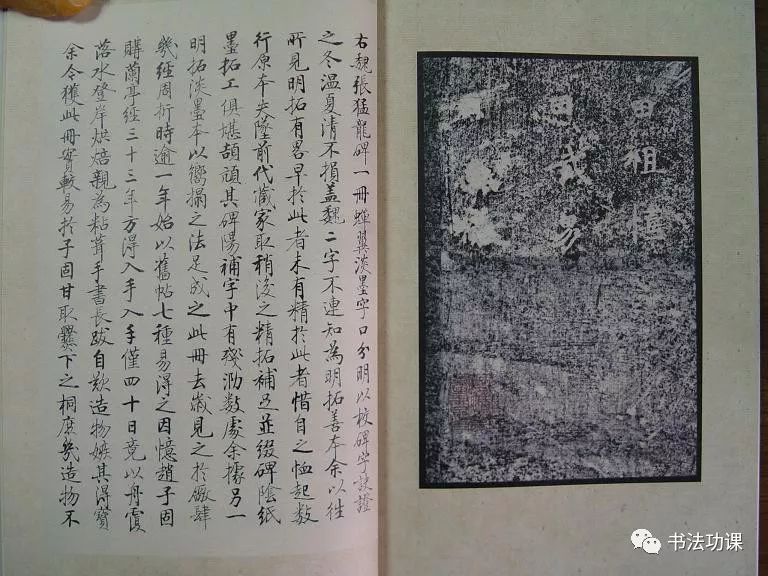 右魏張猛龍碑一冊蟬翼淡墨字口分明以校碑字訣證
之冬温夏清不損蓋魏二字不連知為明拓善本余以往
所見明拓有畧早於此者未有精於此者惜自之恤起数
行原本失墜前代藏家取稍後之精拓補足並綴碑陰紙
墨拓工俱堪頡頏其碑陽補字中有殘泐数處余據另一
明拓淡墨本以嚮搨之法足成之此冊去歲見之於廠肆
幾經周折時逾一年始以舊帖七種易得之因憶趙子固
購蘭亭經三十三年方得入手入手僅四十日竟以舟覆
落水登岸烘焙親為粘葺手書長跋自歎造物嫉其得寶
余今獲此冊實較易於子固甘取爨下之桐庶幾造物不
田祖
书法功课